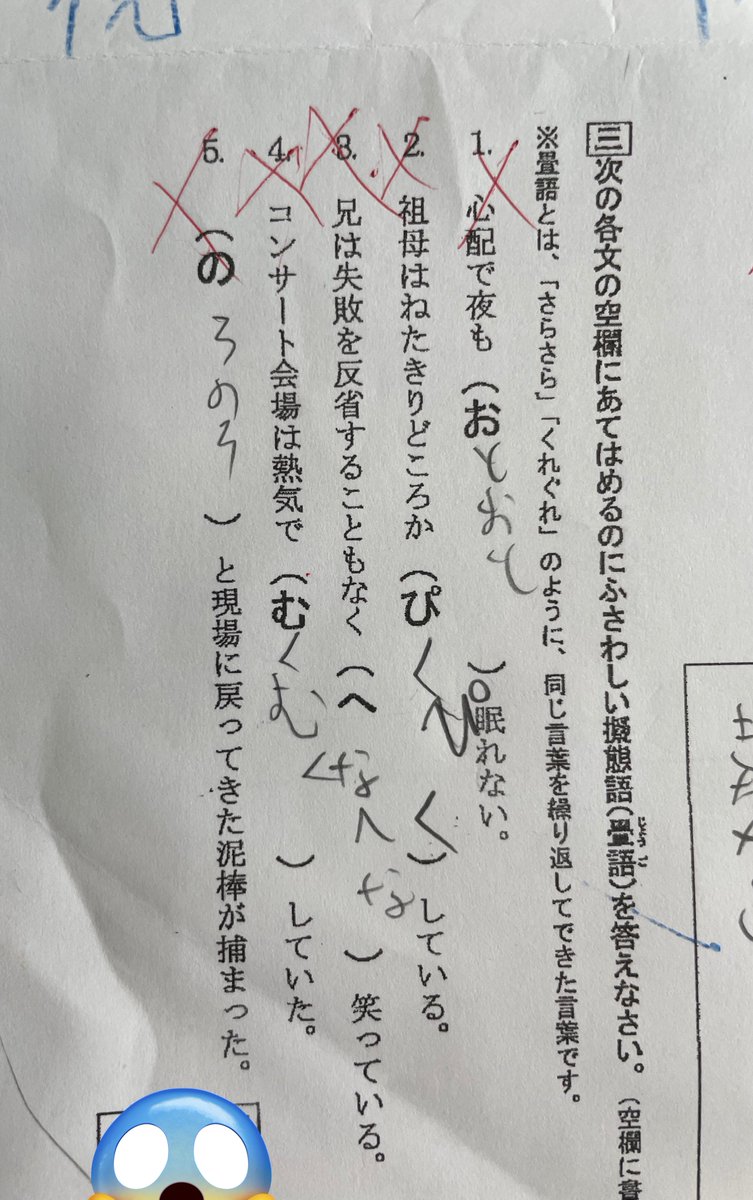 三 次の各文の空欄にあてはめるのにふさわしい擬態語(畳語じょうご)を答えなさい。(空欄に書
※畳語とは、「さらさら」「くれぐれ」のように、同じ言葉を繰り返してできた言葉です。
1. 心配で夜も(おとおと)眠れない。
2. 祖母はねたきりどころか(ぴくぴく)している。
3. 兄は失敗を反省することもなく(へなへな)笑っている。
4. コンサート会場は熱気で(むくむく)していた。
5. (のろのろ)と現場に戻ってきた泥棒が捕まった。